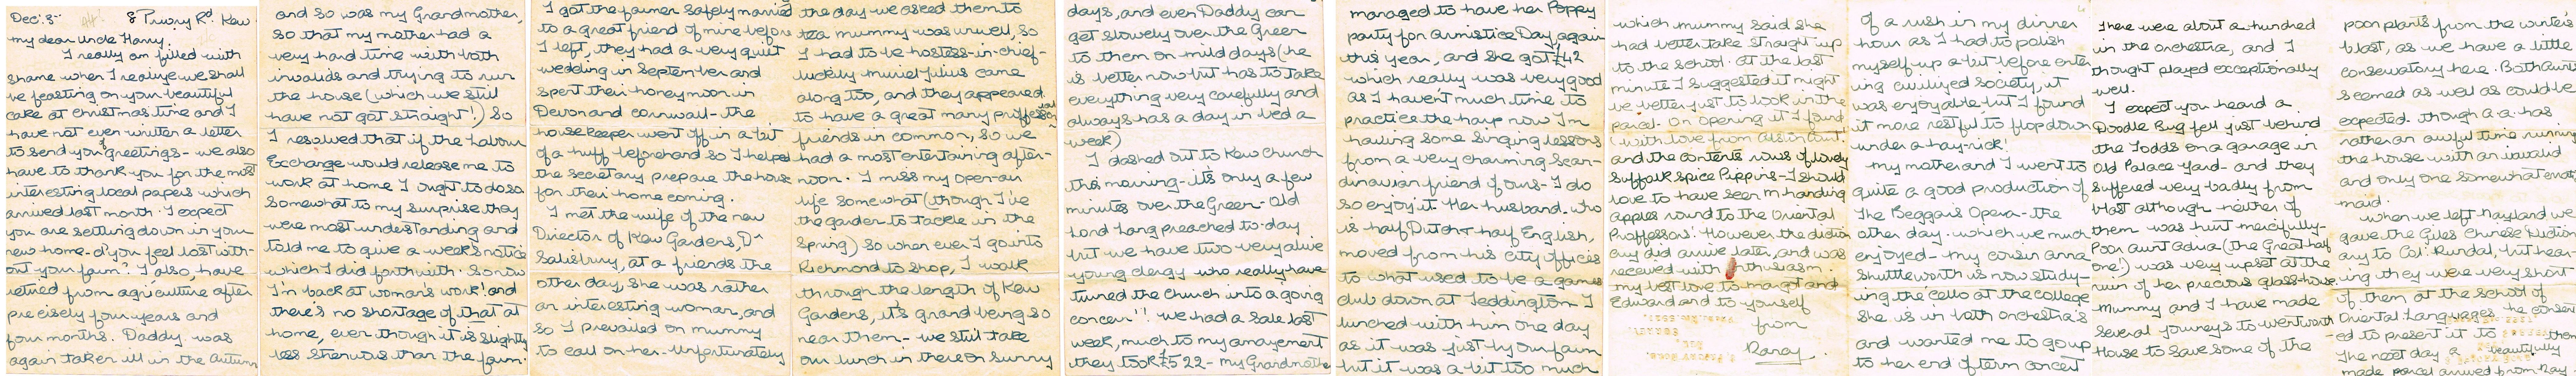 Dec: 3rd 8 Priory Rd. Kew
my dear Uncle Harry.
I really am filled with
shame when I realize we shall
be feasting on your beautiful
cake at Christmas time and I
have not even written a letter
to send you greetings - we also
have to thank you for the most
interesting local papers which
arrived last month. I expect
you are settling down in your
new home - d'you feel lost with-
out your farm? I also, have
retired from agriculture after
precisely four years and
four months. Daddy was
again taken ill in the Autumn
and so was my Grandmother,
so that my mother had a
very hard time with both
invalids and trying to run
the house (which we still
have not got straight!) So
I resolved that if the Labour
Exchange would release me to
work at home I ought to do so
Somewhat to my surprise they
were most understanding and
told me to give a week's notice
which I did forthwith. So now
I'm back at woman's work! and
there's no shortage of that at
home, even though it is slightly
less strenuous than the farm.
I got the farmer safely married
to a great friend of mine before
I left, they had a very quiet
wedding in September and
spent their honeymoon in
Devon and Cornwall - the
housekeeper went off in a bit
of a huff beforehand so I helped
the secretary prepare the house
for their home coming.
I met the wife of the new
Director of Kew Gardens, Dr
Salisbury, at a friends the
other day. She was rather
an interesting woman, and
so I prevailed on mummy
to call on her. Unfortunately
the day we asked them to
tea mummy was unwell, so
I had to be hostess-in-chief -
luckily Muriel Julius came
along too, and they appeared
to have a great many professional
friends in common, so we
had a most entertaining after-
noon. I miss my open-air
life somewhat (though I've
the garden to tackle in the
Spring) so when ever I go into
Richmond to shop, I walk
through the length of Kew
Gardens, it's grand being so
near them - we still take
our lunch in there on sunny
days, and even Daddy can
get slowely over the Green
to them on mild days (he
is better now but has to take
everything very carefully and
always has a day in bed a
week)
I dashed out to Kew Church
this morning - its only a few
minutes over the Green - Old
Lord Lang preached to-day
but we have two very alive
young clergy who really have
turned the church into a going
concern!! We had a sale last
week, much to my amazement
they took £522 - my Grandmother
managed to have her Poppy
party for Armistice Day, again
this year, and she got £42
which really was very good
as I haven't much time to
practice the harp now I'm
having some singing lessons
from a very charming Scan-
dinavian friend of ours - I do
so enjoy it. Her husband, who
is half Dutch & half English,
moved from his city offices
to what used to be a games
club down at Teddington I
lunched with him one day
as it was just by our farm
but it was a bit too much
which mummy said she
had better take straight up
to the school. At the last
minute I suggested it might
be better just to look in the
parcel. On opening it I found
"with love from Alsin Aunt"
and the contents rows of lovely
Suffolk Spice Pippins - I should
love to have seen m handing
apples round to the Oriental
Proffessors! However the diction
ary did arrive later, and was
received with enthusiasm.
my best love to margot and
Edward and to yourself
from
of a rush in my dinner
hour as I had to polish
myself up a bit before enter
ing civilized society, it
was enjoyable but I found
it more restful to flop down
under a hay-rick!
My mother and I went to
quite a good production of
The Beggars Opera - the
other day. which we much
enjoyed - my cousin Anna
Shuttleworth is now study-
ing the cello at the college
She is in both orchestra's
and wanted me to go up
to her end of term concert
There were about a hundred
in the orchestra, and I
thought played exceptionally
well.
I expect you heard a
Doodle Bug fell just behind
the Todds on a garage in
Old Palace Yard - and they
suffered very badly from
blast although neither of
them was hurt mercifully -
Poor aunt Adwa (the Great half
one!) was very upset at the
ruin of her precious glass-house.
Mummy and I have made
several journeys to Wentworth
House to save some of the
poor plants from the winter's
blast, as we have a little
conservatory here. Both aunts
seemed as well as could be
expected. though a.a. has
rather an awful time running
the house with an invalid
and only one somewhat erratic
maid.
When we left Nayland we
gave the Giles Chinese Diction
ary to Col: Rundal, but hear-
ing they were very short
of them at the School of
Oriental Languages, he consent
-ed to present it to them
The next day a beautifully
made parcel arrived from Nay